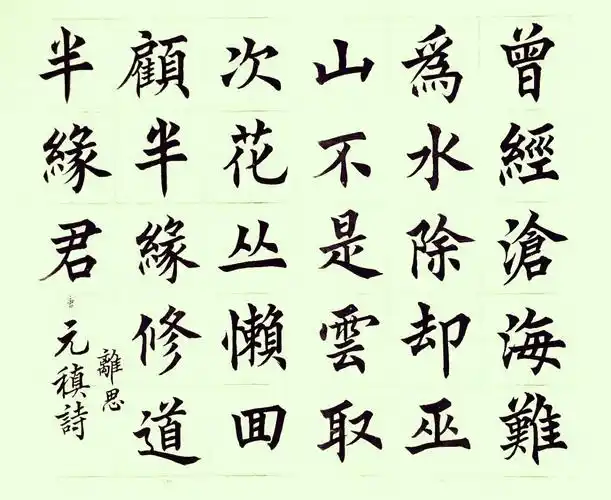 曾經滄海難
爲水除却巫
山不是雲取
次花丛懶回
顧半緣修道
半緣君
離思
元稹詩